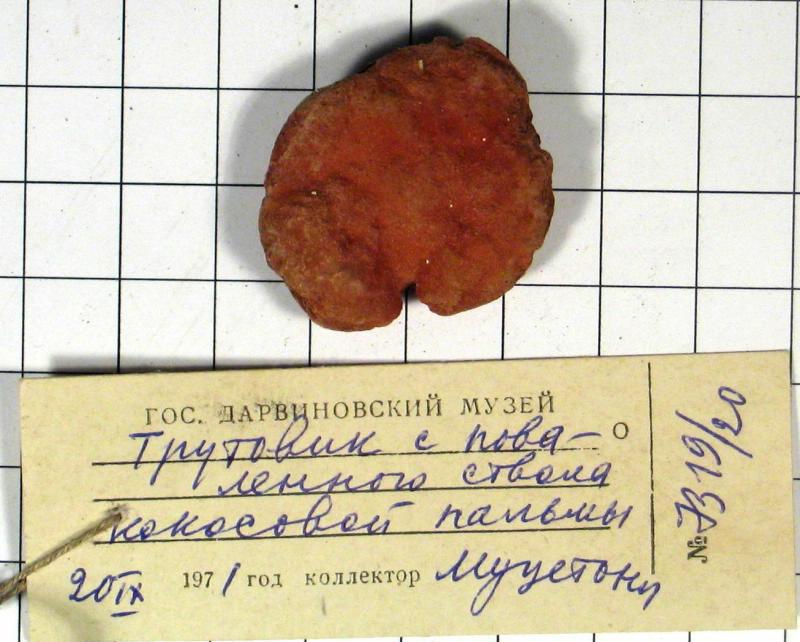 ГОС. ДАРВИНОВСКИЙ МУЗЕЙ
Трутовик с пова- О
ленного ствола
кокосовой пальмы
20 IX 1971 год коллектор
№ 19/20